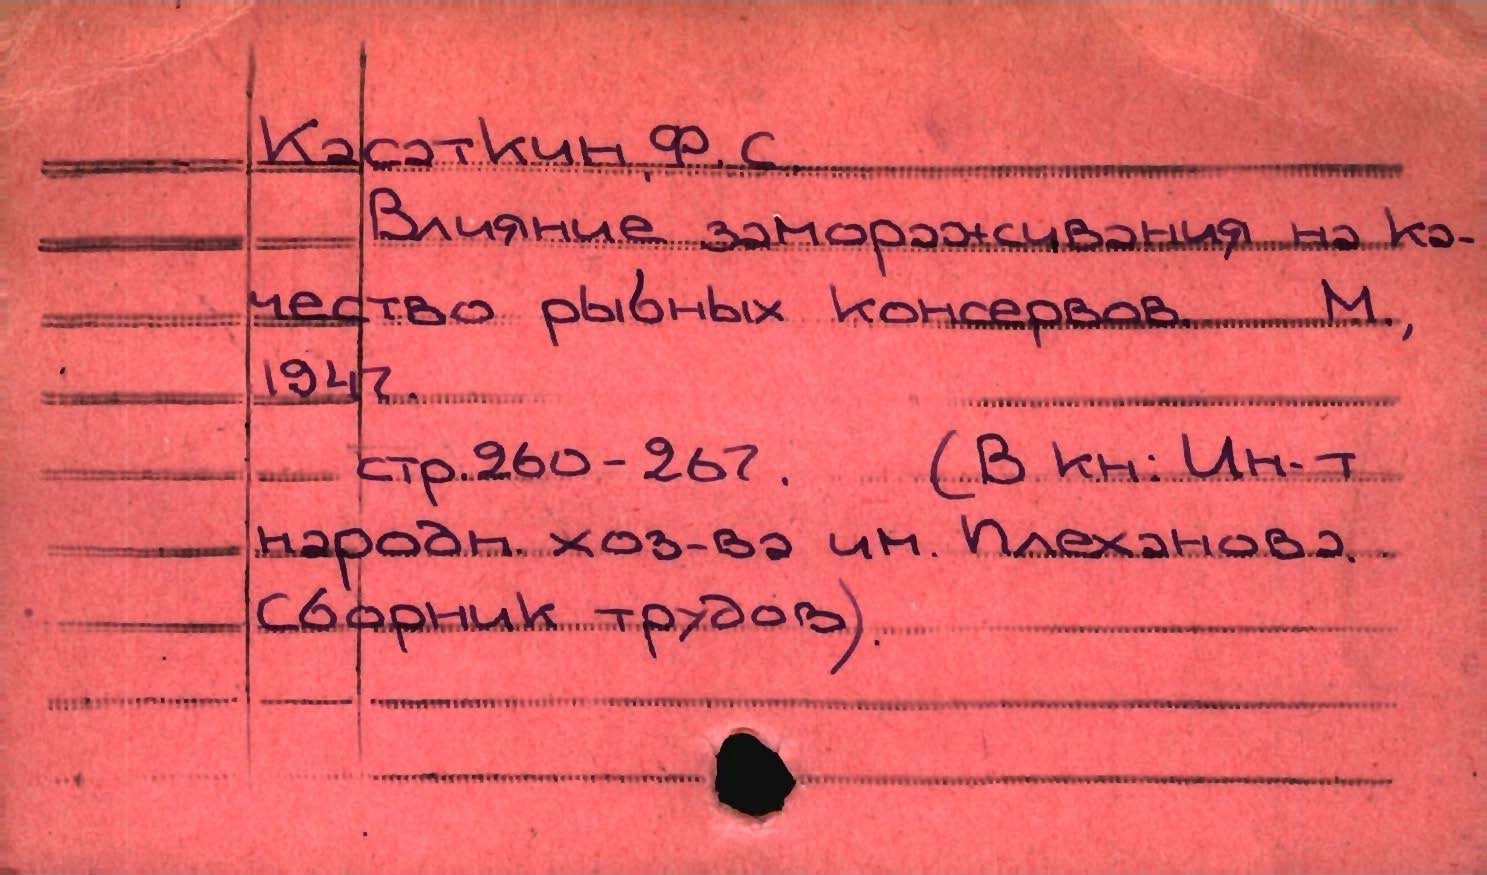 Касаткин, Ф. С.
Влияние замораживания на ка-
чество рыбных консервов. М.,
1947.
стр. 260-267. (В кн: Ин-т
народн. хоз-ва им. Плеханова.
Сборник трудов).